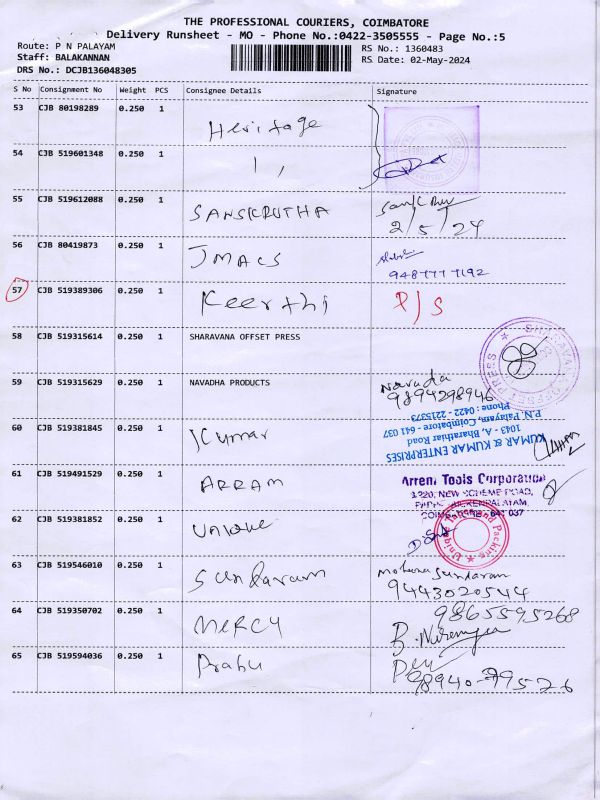 THE PROFESSIONAL COURIERS, COIMBATORE
Delivery Runsheet - MO - Phone No.:0422-3505555 - Page No.:5
Route: P N PALAYAM
RS No.: 1360483
Staff: BALAKANNAN
RS Date: 02-May-2024
DRS No.: DCJB136048305
S No Consignment No Weight PCS Consignee Details Signature
53 CJB 80198289 0.250 1 Heritage
54 CJB 519601348 0.250 1 ,,
55 CJB 519612088 0.250 1 SANSKRUTHA
2/5/24
56 CJB 80419873 0.250 1 JMACS
9487777192
57 CJB 519389306 0.250 1 Keerthi P/S
58 CJB 519315614 0.250 1 SHARAVANA OFFSET PRESS
59 CJB 519315629 0.250 1 NAVADHA PRODUCTS Navada
9894298946
60 CJB 519381845 0.250 1 Kumar
KUMAR & KUMAR ENTERPRISES
1043 - A, Bharathiar Road
P.N. Palayam, Coimbatore - 641 037
Phone : 0422 - 2215373
61 CJB 519491529 0.250 1 ARRAM
Arreni Tools Corporation
NEW SCHEME ROAD,
62 CJB 519381852 0.250 1 Unique
63 CJB 519546010 0.250 1 Sundaram Mohana Sundaram
9443020544
64 CJB 519350702 0.250 1 MERCY
9865595268
65 CJB 519594036 0.250 1 Prabu
98940-79526